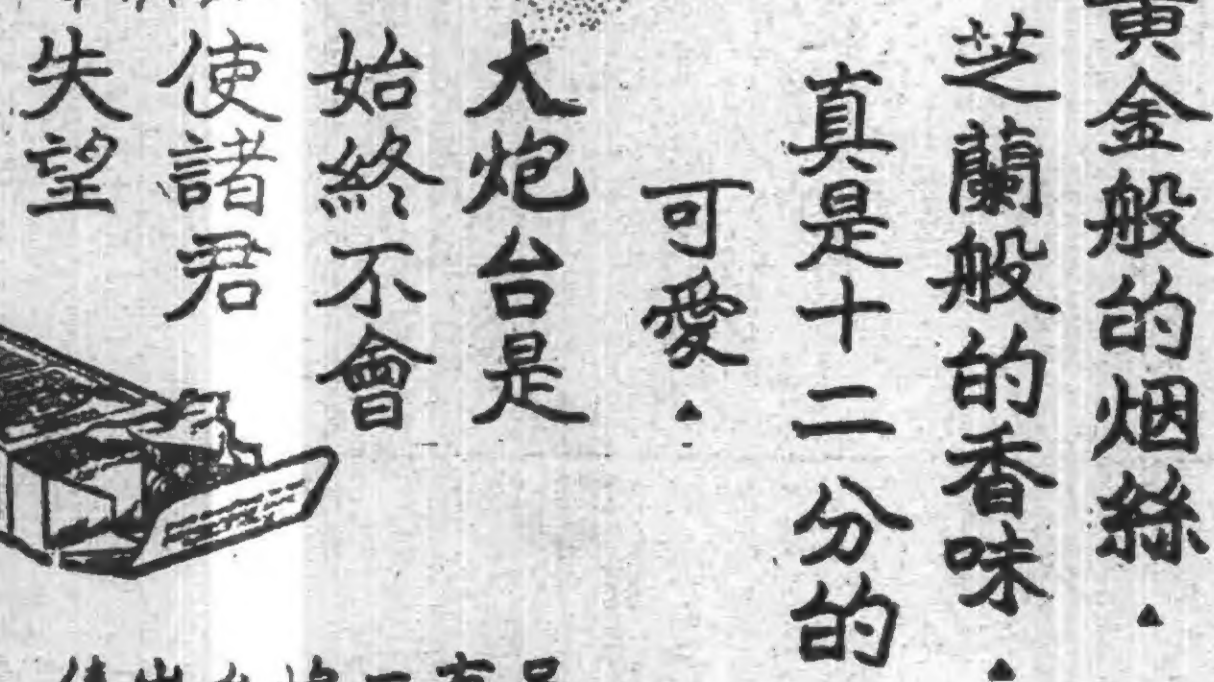 黃金般的烟絲▲
芝蘭般的香味▲
真是十二分的
可愛▲
大炮台是
始終不會
使諸君
失望